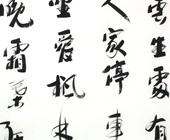 雲生處有
人家停車
坐愛楓林
晚霜葉